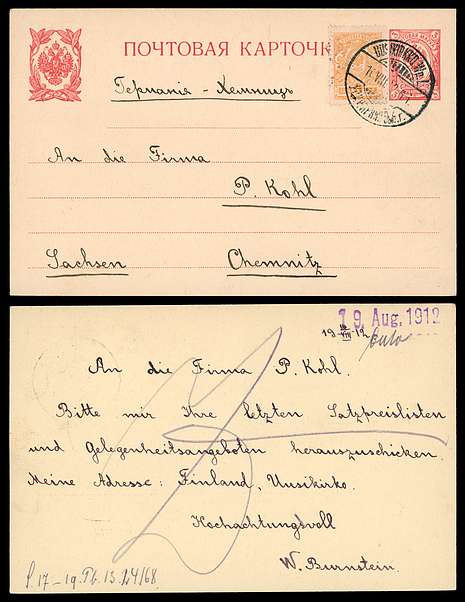 ПОЧТОВАЯ КАРТОЧК
Германія - Хемницъ
An die Firma
P. Kohl
Sachsen Chemnitz
19 Aug. 1912
An die Firma P. Kohl.
Bitte mir Ihre letzten Satzpreislisten
und Gelegenheitsangeboten herauszuschicken.
Meine Adresse: Finland, Uusikirko.
Hochachtungsvoll
W. Burnstein.